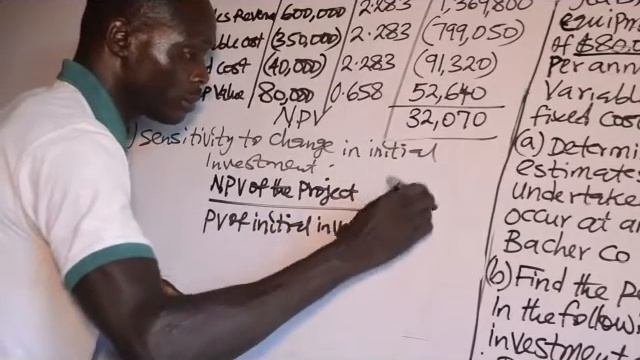 Revenue 600,000 2.283 1,369,800
Cost (350,000) 2.283 (799,050)
Cost (40,000) 2.283 (91,320)
Value 80,000 0.658 52,640
NPV 32,070
) Sensitivity to change in initial
Investment.
NPV of the Project
PV of initial
of $80,0
Per ann
Variabl
fixed Cost
(a) Determi
estimate
undertake
occur at a
Bacher Co
(b) Find the
In the follow
investment